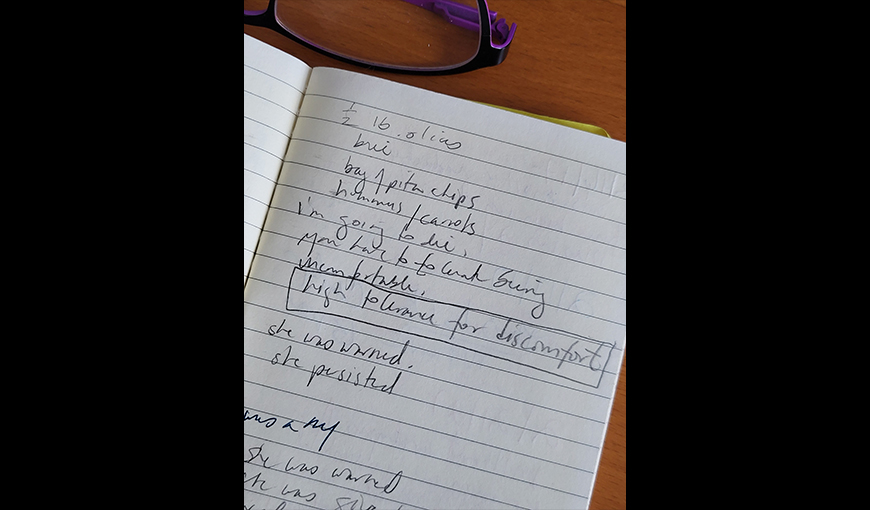 1/2 lb. olives
brie
bag / pita chips
hummus / carrots
I'm going to die.
You have to tolerate being
uncomfortable.
high tolerance for discomfort
she was warned.
she persisted
was a
she was warned
she was